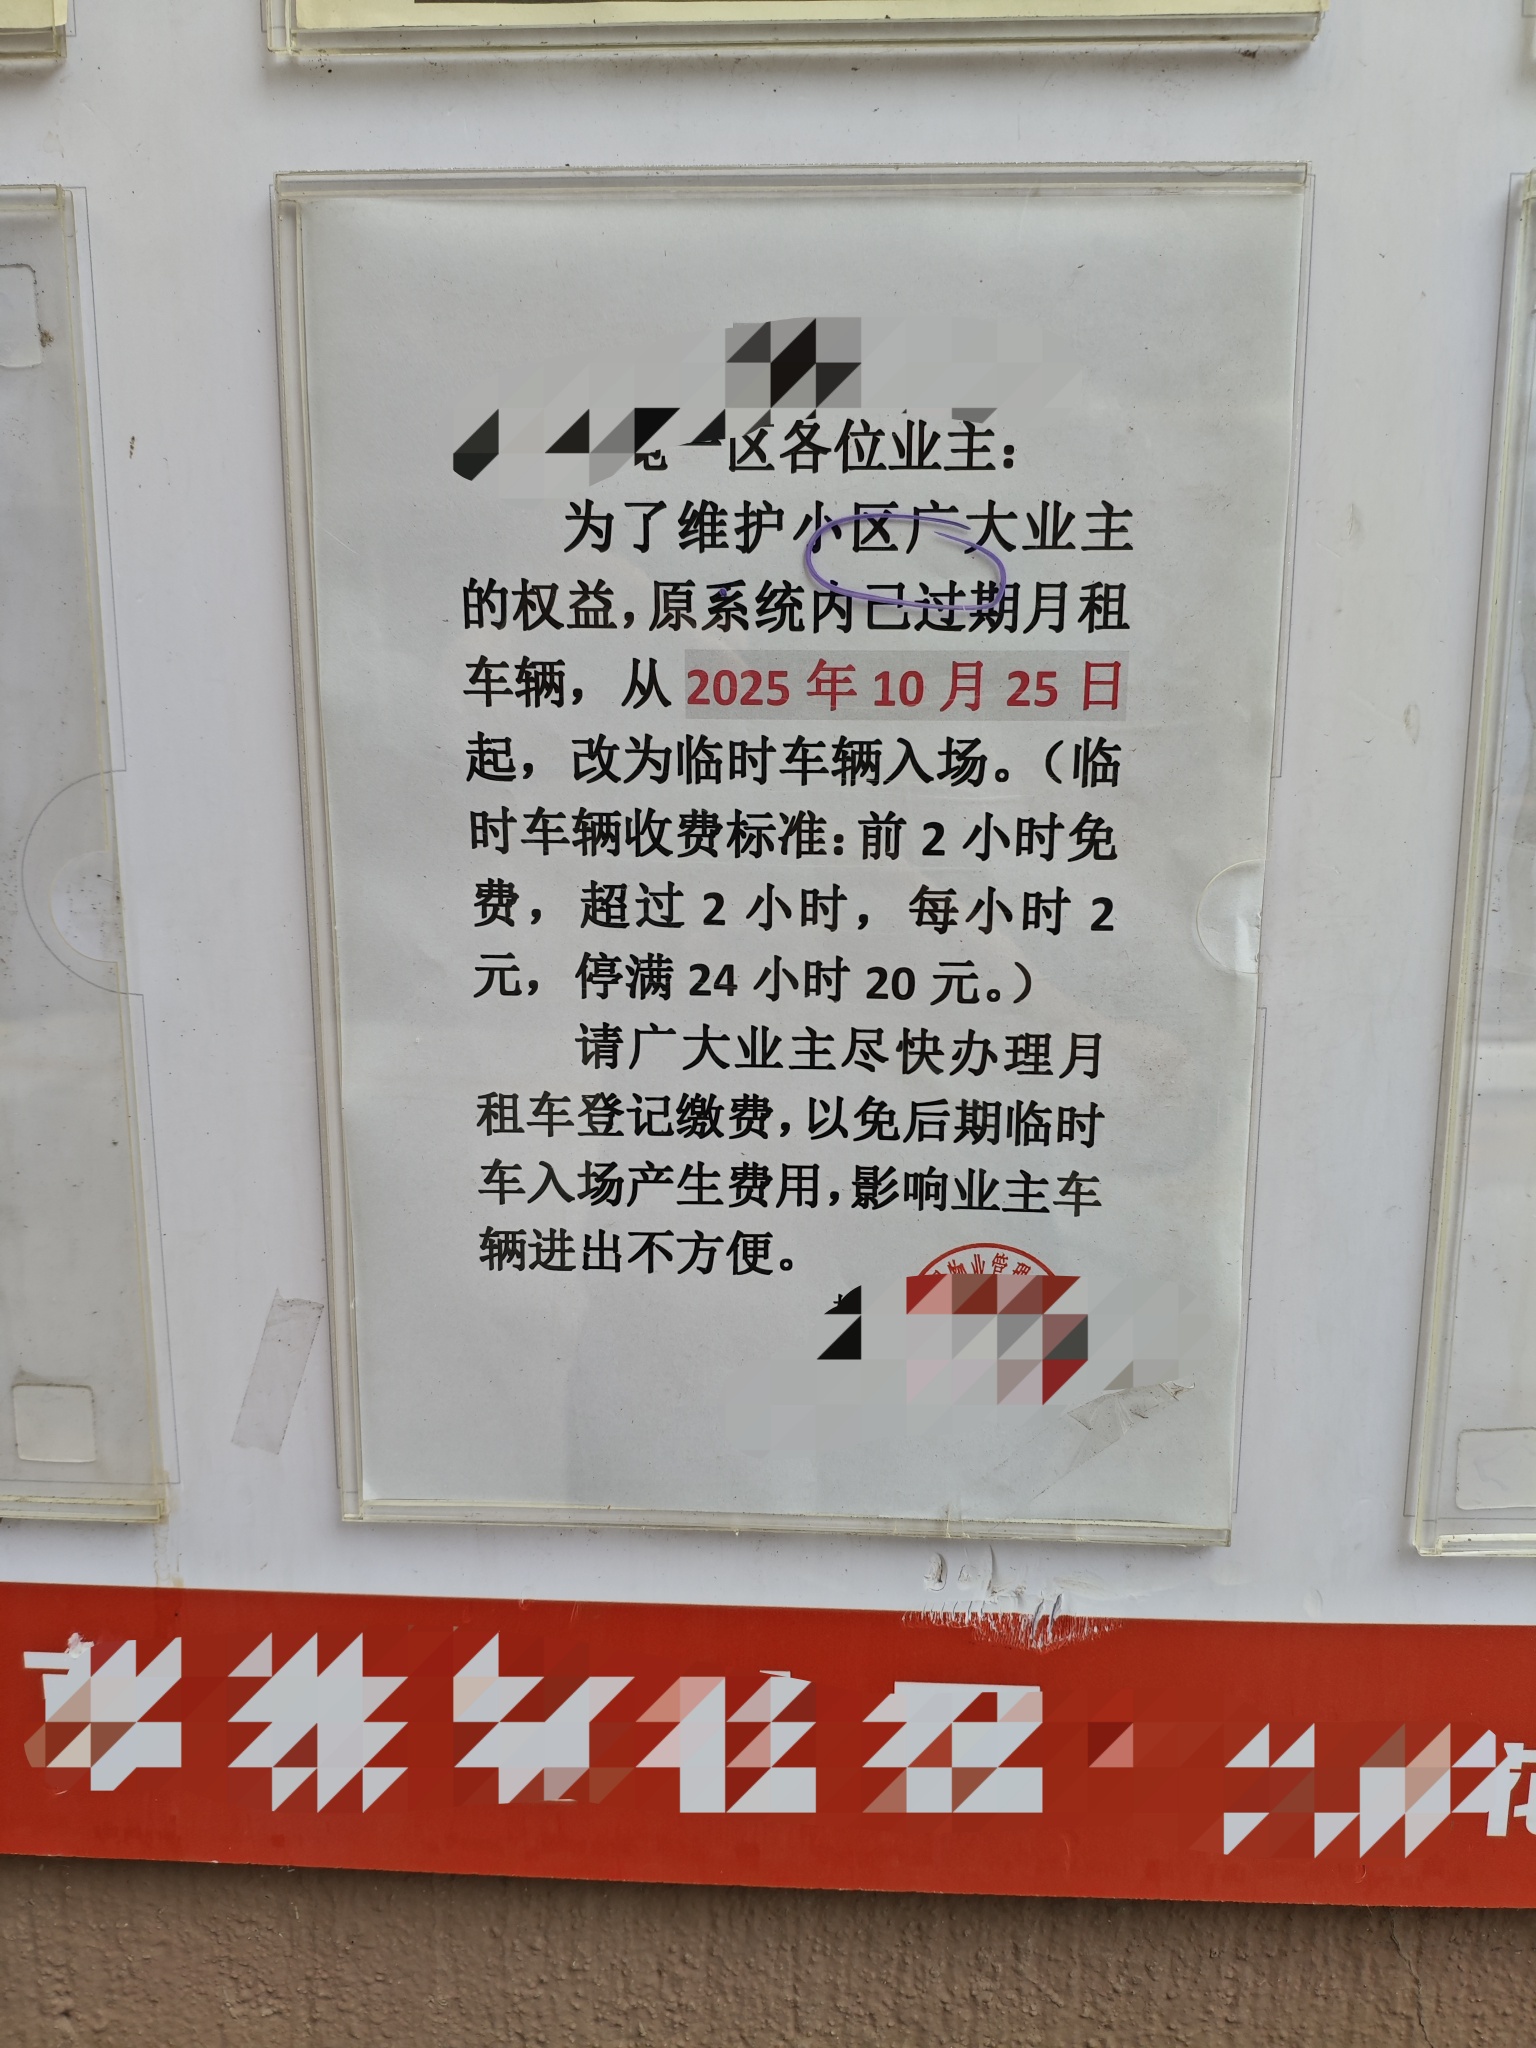 一区各位业主：
为了维护小区广大业主
的权益，原系统内已过期月租
车辆，从 2025 年 10 月 25 日
起，改为临时车辆入场。（临
时车辆收费标准：前 2 小时免
费，超过 2 小时，每小时 2
元，停满 24 小时 20 元。）
请广大业主尽快办理月
租车登记缴费，以免后期临时
车入场产生费用，影响业主车
辆进出不方便。
物业管理